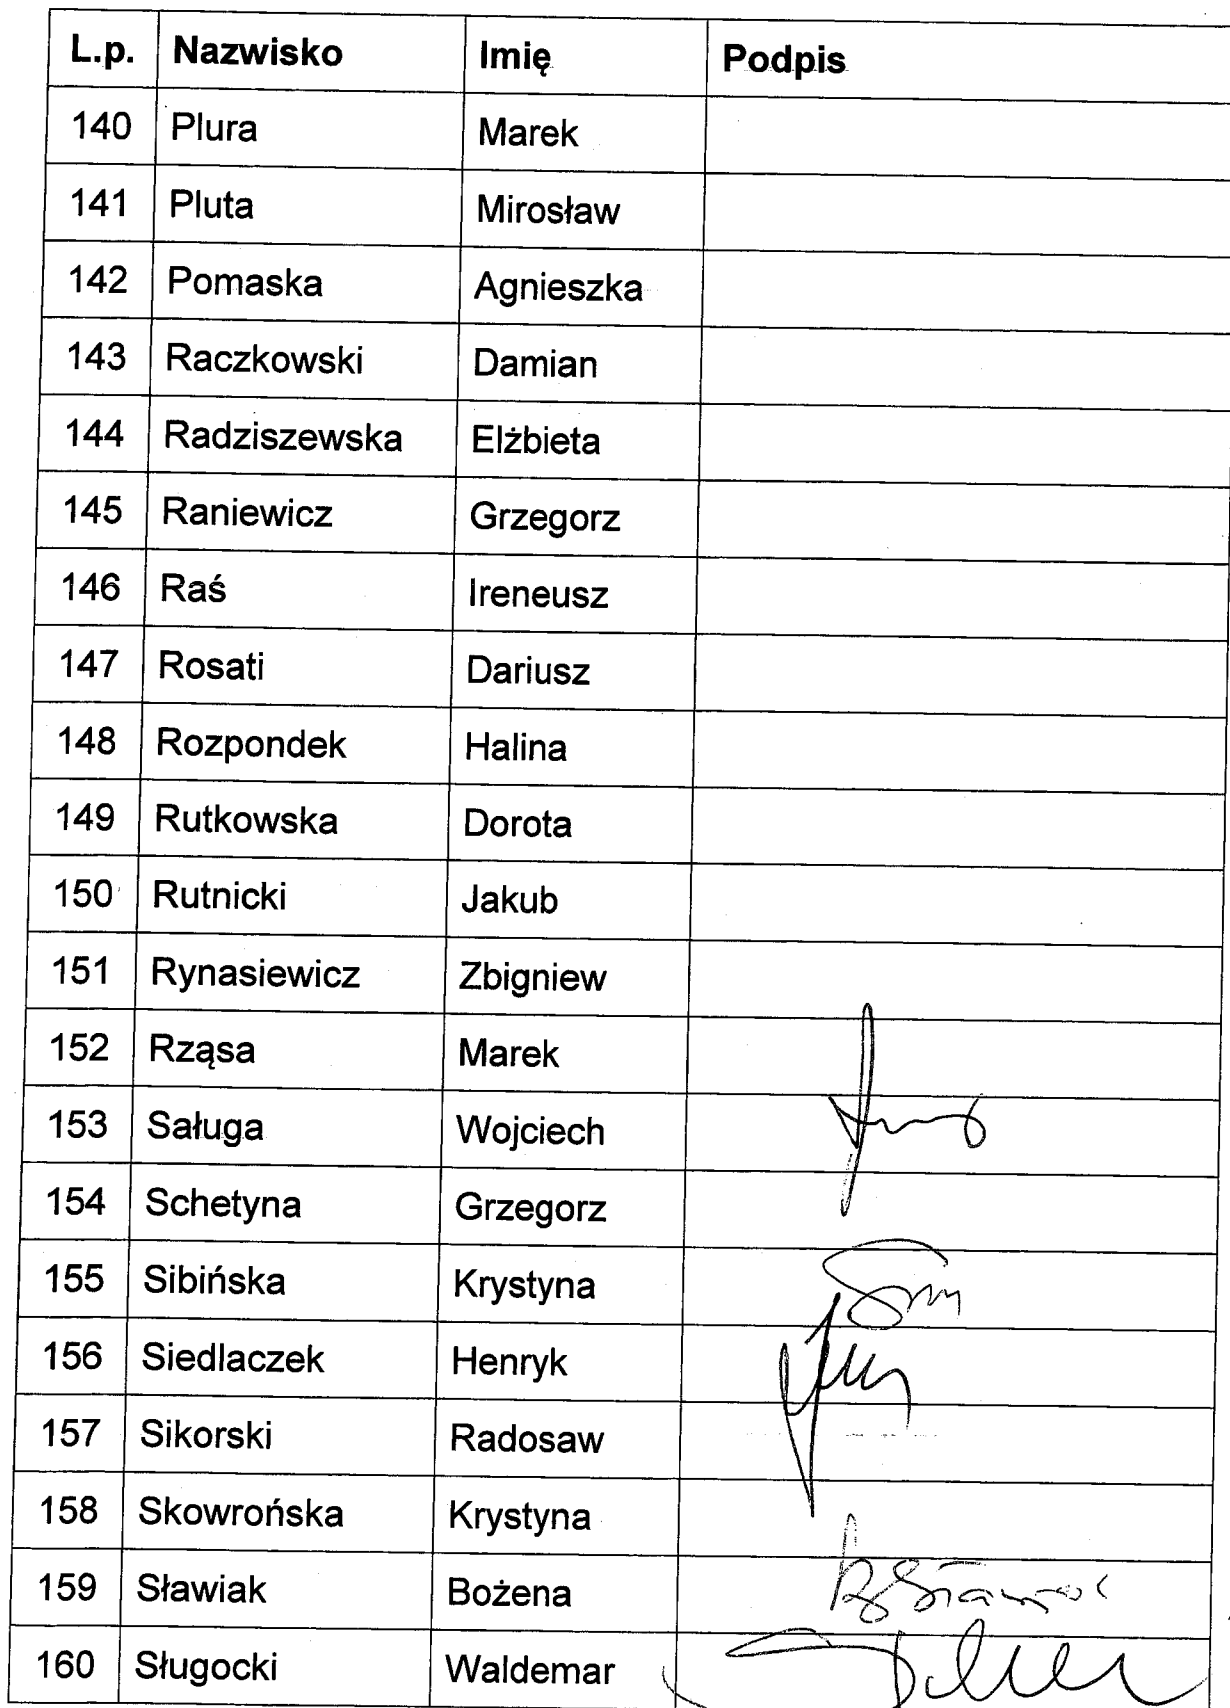 L.p. Nazwisko Imię Podpis
140 Plura Marek
141 Pluta Mirosław
142 Pomaska Agnieszka
143 Raczkowski Damian
144 Radziszewska Elżbieta
145 Raniewicz Grzegorz
146 Raś Ireneusz
147 Rosati Dariusz
148 Rozpondek Halina
149 Rutkowska Dorota
150 Rutnicki Jakub
151 Rynasiewicz Zbigniew
152 Rząsa Marek
153 Saługa Wojciech
154 Schetyna Grzegorz
155 Sibińska Krystyna
156 Siedlaczek Henryk
157 Sikorski Radosaw
158 Skowrońska Krystyna
159 Sławiak Bożena
160 Sługocki Waldemar